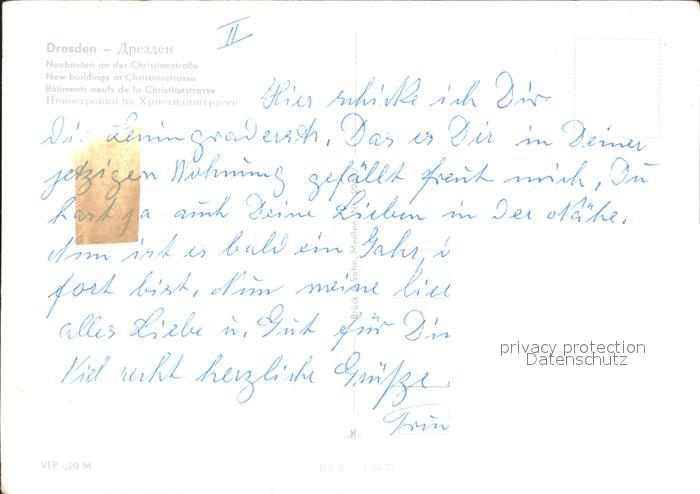 II
Dresden – Дрезден
Neubauten an der Christianstraße
New buildings at Christianstrasse
Bâtiments neufs de la Christianstrasse
Новостройки на Христианштрассе
Hier schicke ich Dir
Die Leningraderstr. Das es Dir in Deiner
jetzigen Wohnung gefällt freut mich, Du
hast ja auch Deine Lieben in der Nähe.
Nun ist es bald ein Jahr,
fort bist. Nun meine
alles Liebe u. Gut für
Viel recht herzliche Grüße
privacy protection
Datenschutz
Brück & Sohn, Meißen
VEP -,20 M